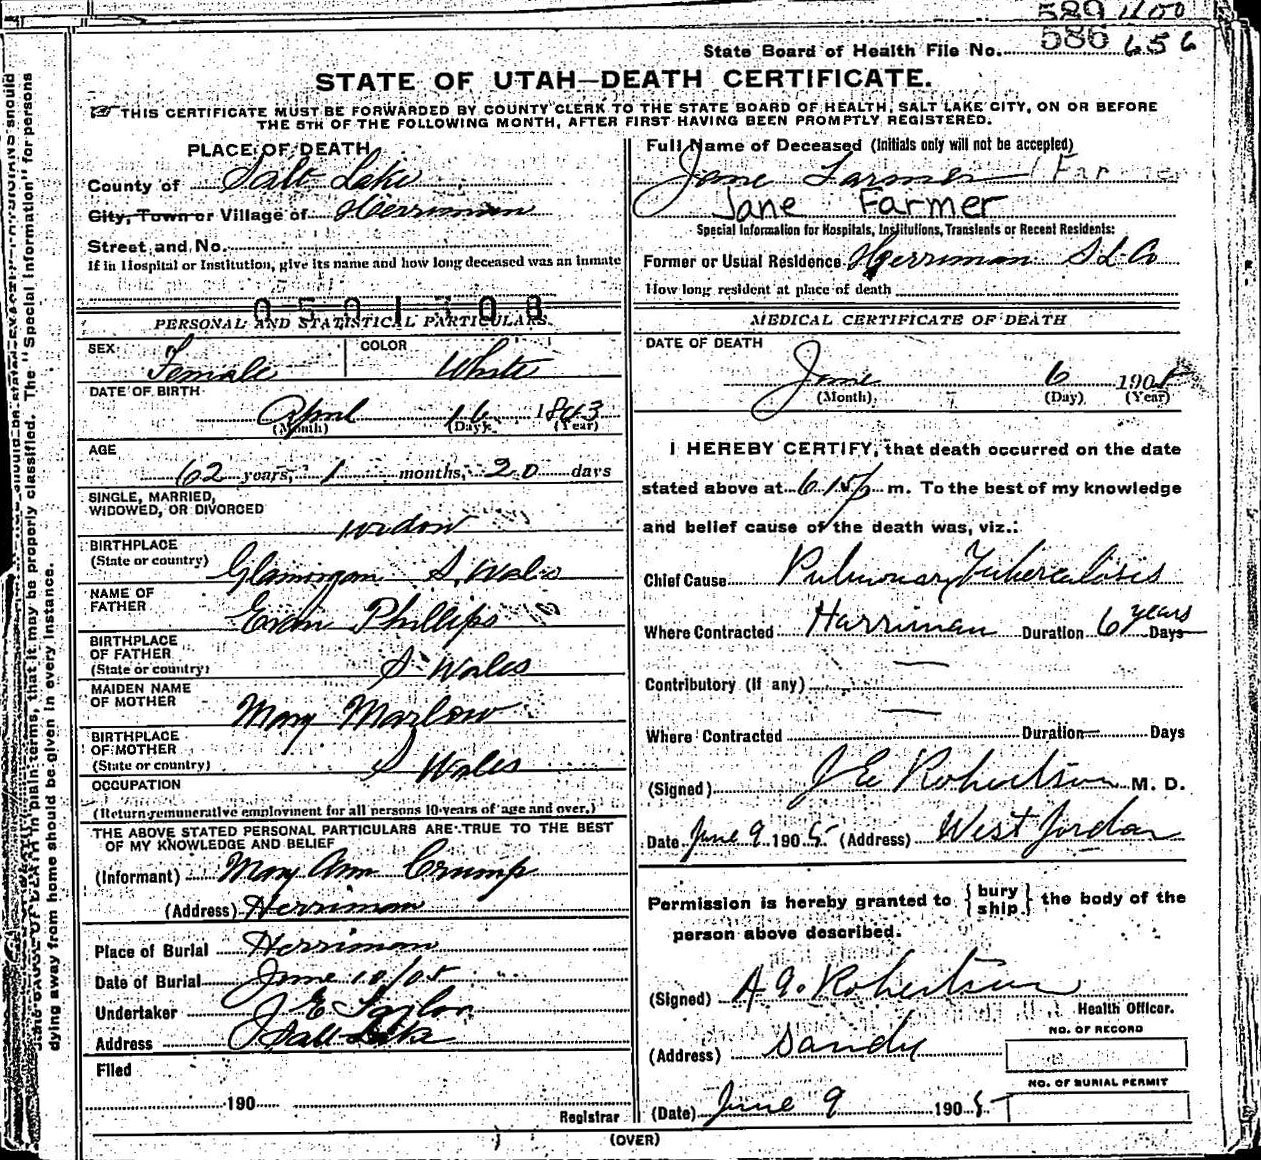 589 1100
State Board of Health File No. 586 656
STATE OF UTAH—DEATH CERTIFICATE.
THIS CERTIFICATE MUST BE FORWARDED BY COUNTY CLERK TO THE STATE BOARD OF HEALTH, SALT LAKE CITY, ON OR BEFORE
THE 5TH OF THE FOLLOWING MONTH, AFTER FIRST HAVING BEEN PROMPTLY REGISTERED.
PLACE OF DEATH
County of Salt Lake
City, Town or Village of Herriman
Street and No.
If in Hospital or Institution, give its name and how long deceased was an inmate
0501308
PERSONAL AND STATISTICAL PARTICULARS.
SEX Female COLOR White
DATE OF BIRTH
April 16 1843
(Month) (Day) (Year)
AGE
62 years, 1 months, 20 days
SINGLE, MARRIED,
WIDOWED, OR DIVORCED
widow
BIRTHPLACE
(State or country) Glamorgan S. Wales
NAME OF
FATHER Evan Phillips
BIRTHPLACE
OF FATHER
(State or country) S Wales
MAIDEN NAME
OF MOTHER Mary Marlow
BIRTHPLACE
OF MOTHER
(State or country) S Wales
OCCUPATION
(Return remunerative employment for all persons 10 years of age and over.)
THE ABOVE STATED PERSONAL PARTICULARS ARE TRUE TO THE BEST
OF MY KNOWLEDGE AND BELIEF
(Informant) Mary Ann Crump
(Address) Herriman
Place of Burial Herriman
Date of Burial June 10/05
Undertaker J E Taylor
Address Salt Lake
Filed
190
Registrar
Full Name of Deceased (Initials only will not be accepted)
Jane Farmer Farmer
Jane Farmer
Special Information for Hospitals, Institutions, Transients or Recent Residents:
Former or Usual Residence Herriman S L Co
How long resident at place of death
MEDICAL CERTIFICATE OF DEATH
DATE OF DEATH
June 6 1905
(Month) (Day) (Year)
I HEREBY CERTIFY, that death occurred on the date
stated above at 6 15 p m. To the best of my knowledge
and belief cause of the death was, viz.:
Chief Cause Pulmonary Tuberculosis
Where Contracted Harriman Duration 6 years Days
Contributory (if any)
Where Contracted Duration Days
(Signed) J E Robertson M. D.
Date June 9 1905 (Address) West Jordan
Permission is hereby granted to { bury ship } the body of the
person above described.
(Signed) A. A. Robertson
Health Officer.
NO. OF RECORD
(Address) Sandy
NO. OF BURIAL PERMIT
(Date) June 9 1905
(OVER)
in plain terms, that it may be properly classified. The "Special Information" for persons
dying away from home should be given in every instance.